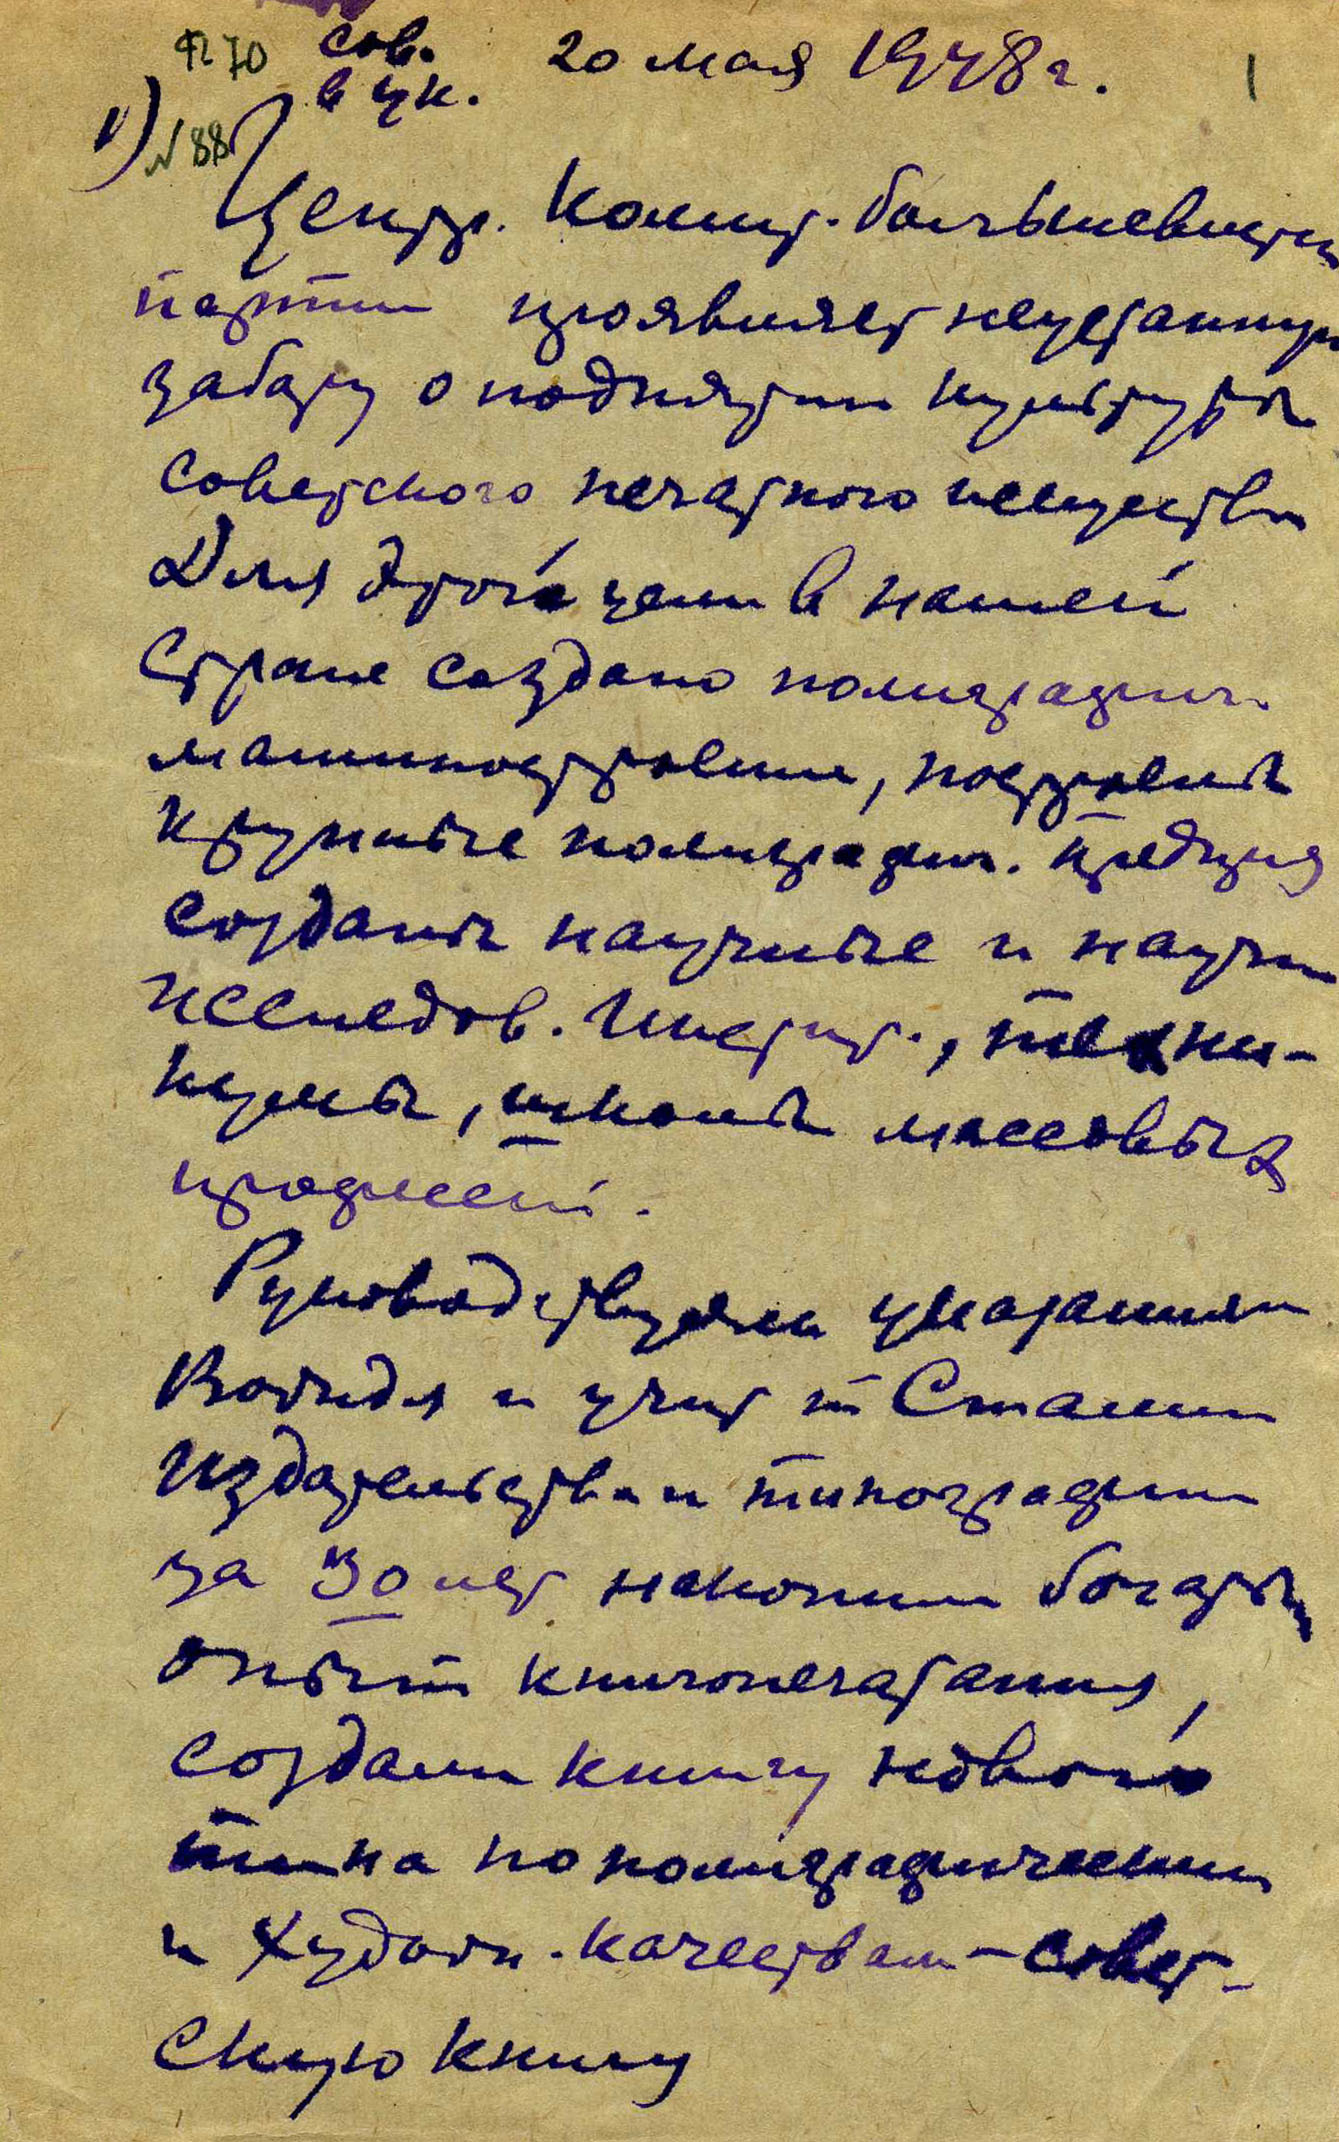 Ф 70 сов. 20 мая 1948 г. 1
в цк.
1) № 88
Центр. Комит. большевистск
партии проявляет неустанную
заботу о поднятии культуры
советского печатного искусства
Для этой цели в нашей
стране создано полиграфич.
машиностроение, построены
крупные полиграфич. предпия
созданы научные и научн
исследов. Инстит., техни-
кумы, школы массовых
профессий.
Руководствуясь указаниями
Вождя и учит т Сталин
издательства и типографии
за 30 лет накопили богаты
опыт книгопечатания,
создали книгу нового
типа по полиграфическим
и худож. качествам – совет-
скую книгу